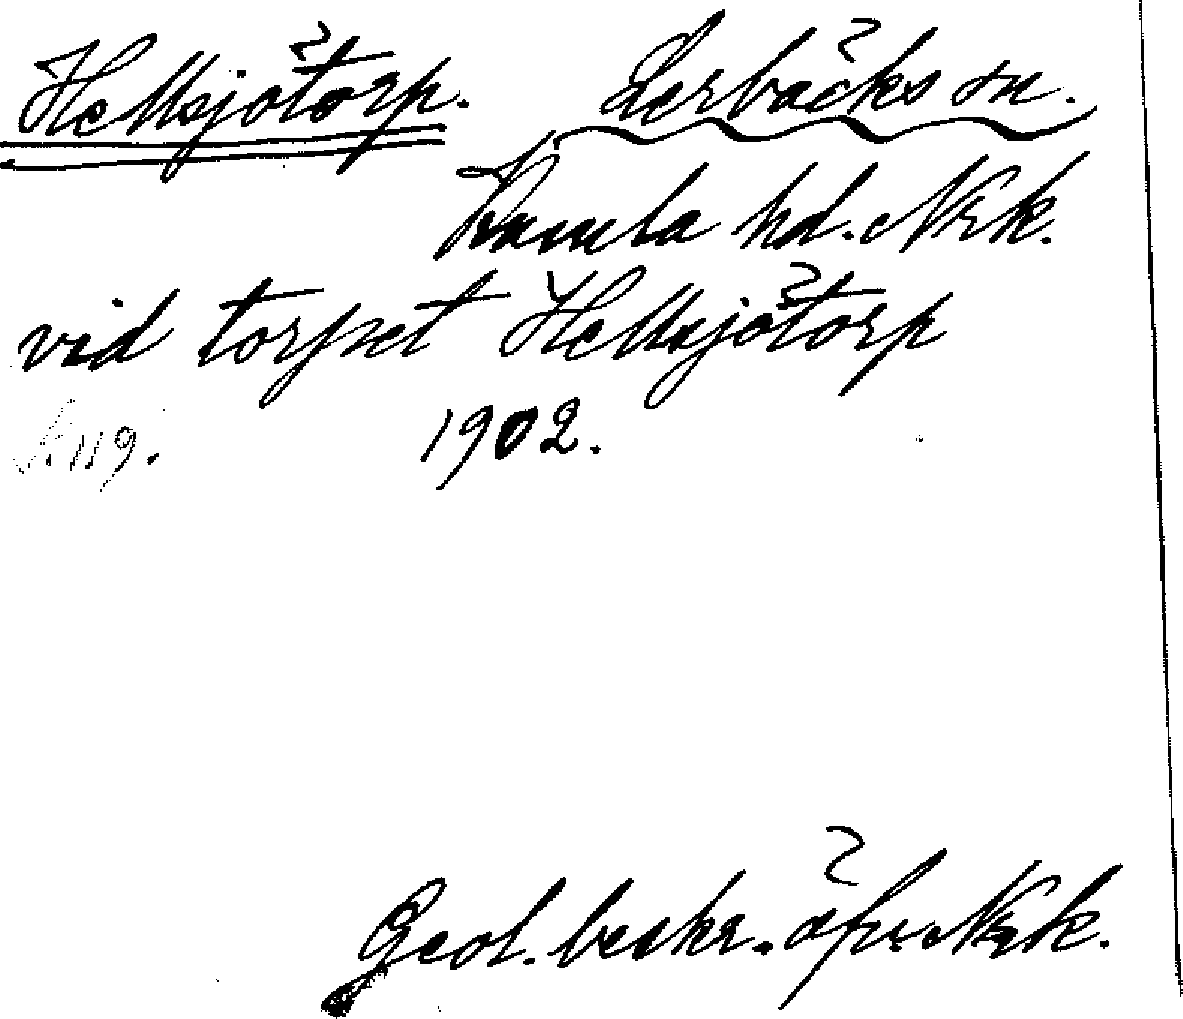 Hellsjötorp. Lerbäcks sn.
Kumla hd. Nrk.
vid torpet Hellsjötorp
s. 119. 1902.
Geol. beskr. öfv. Nrk.